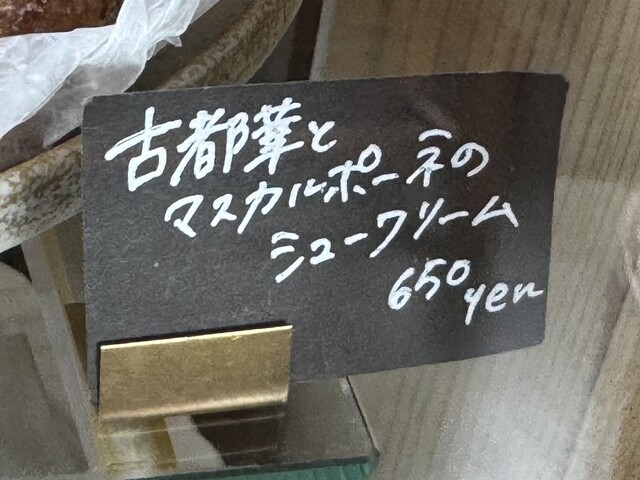 古都華と
マスカルポーネの
シュークリーム
650yen